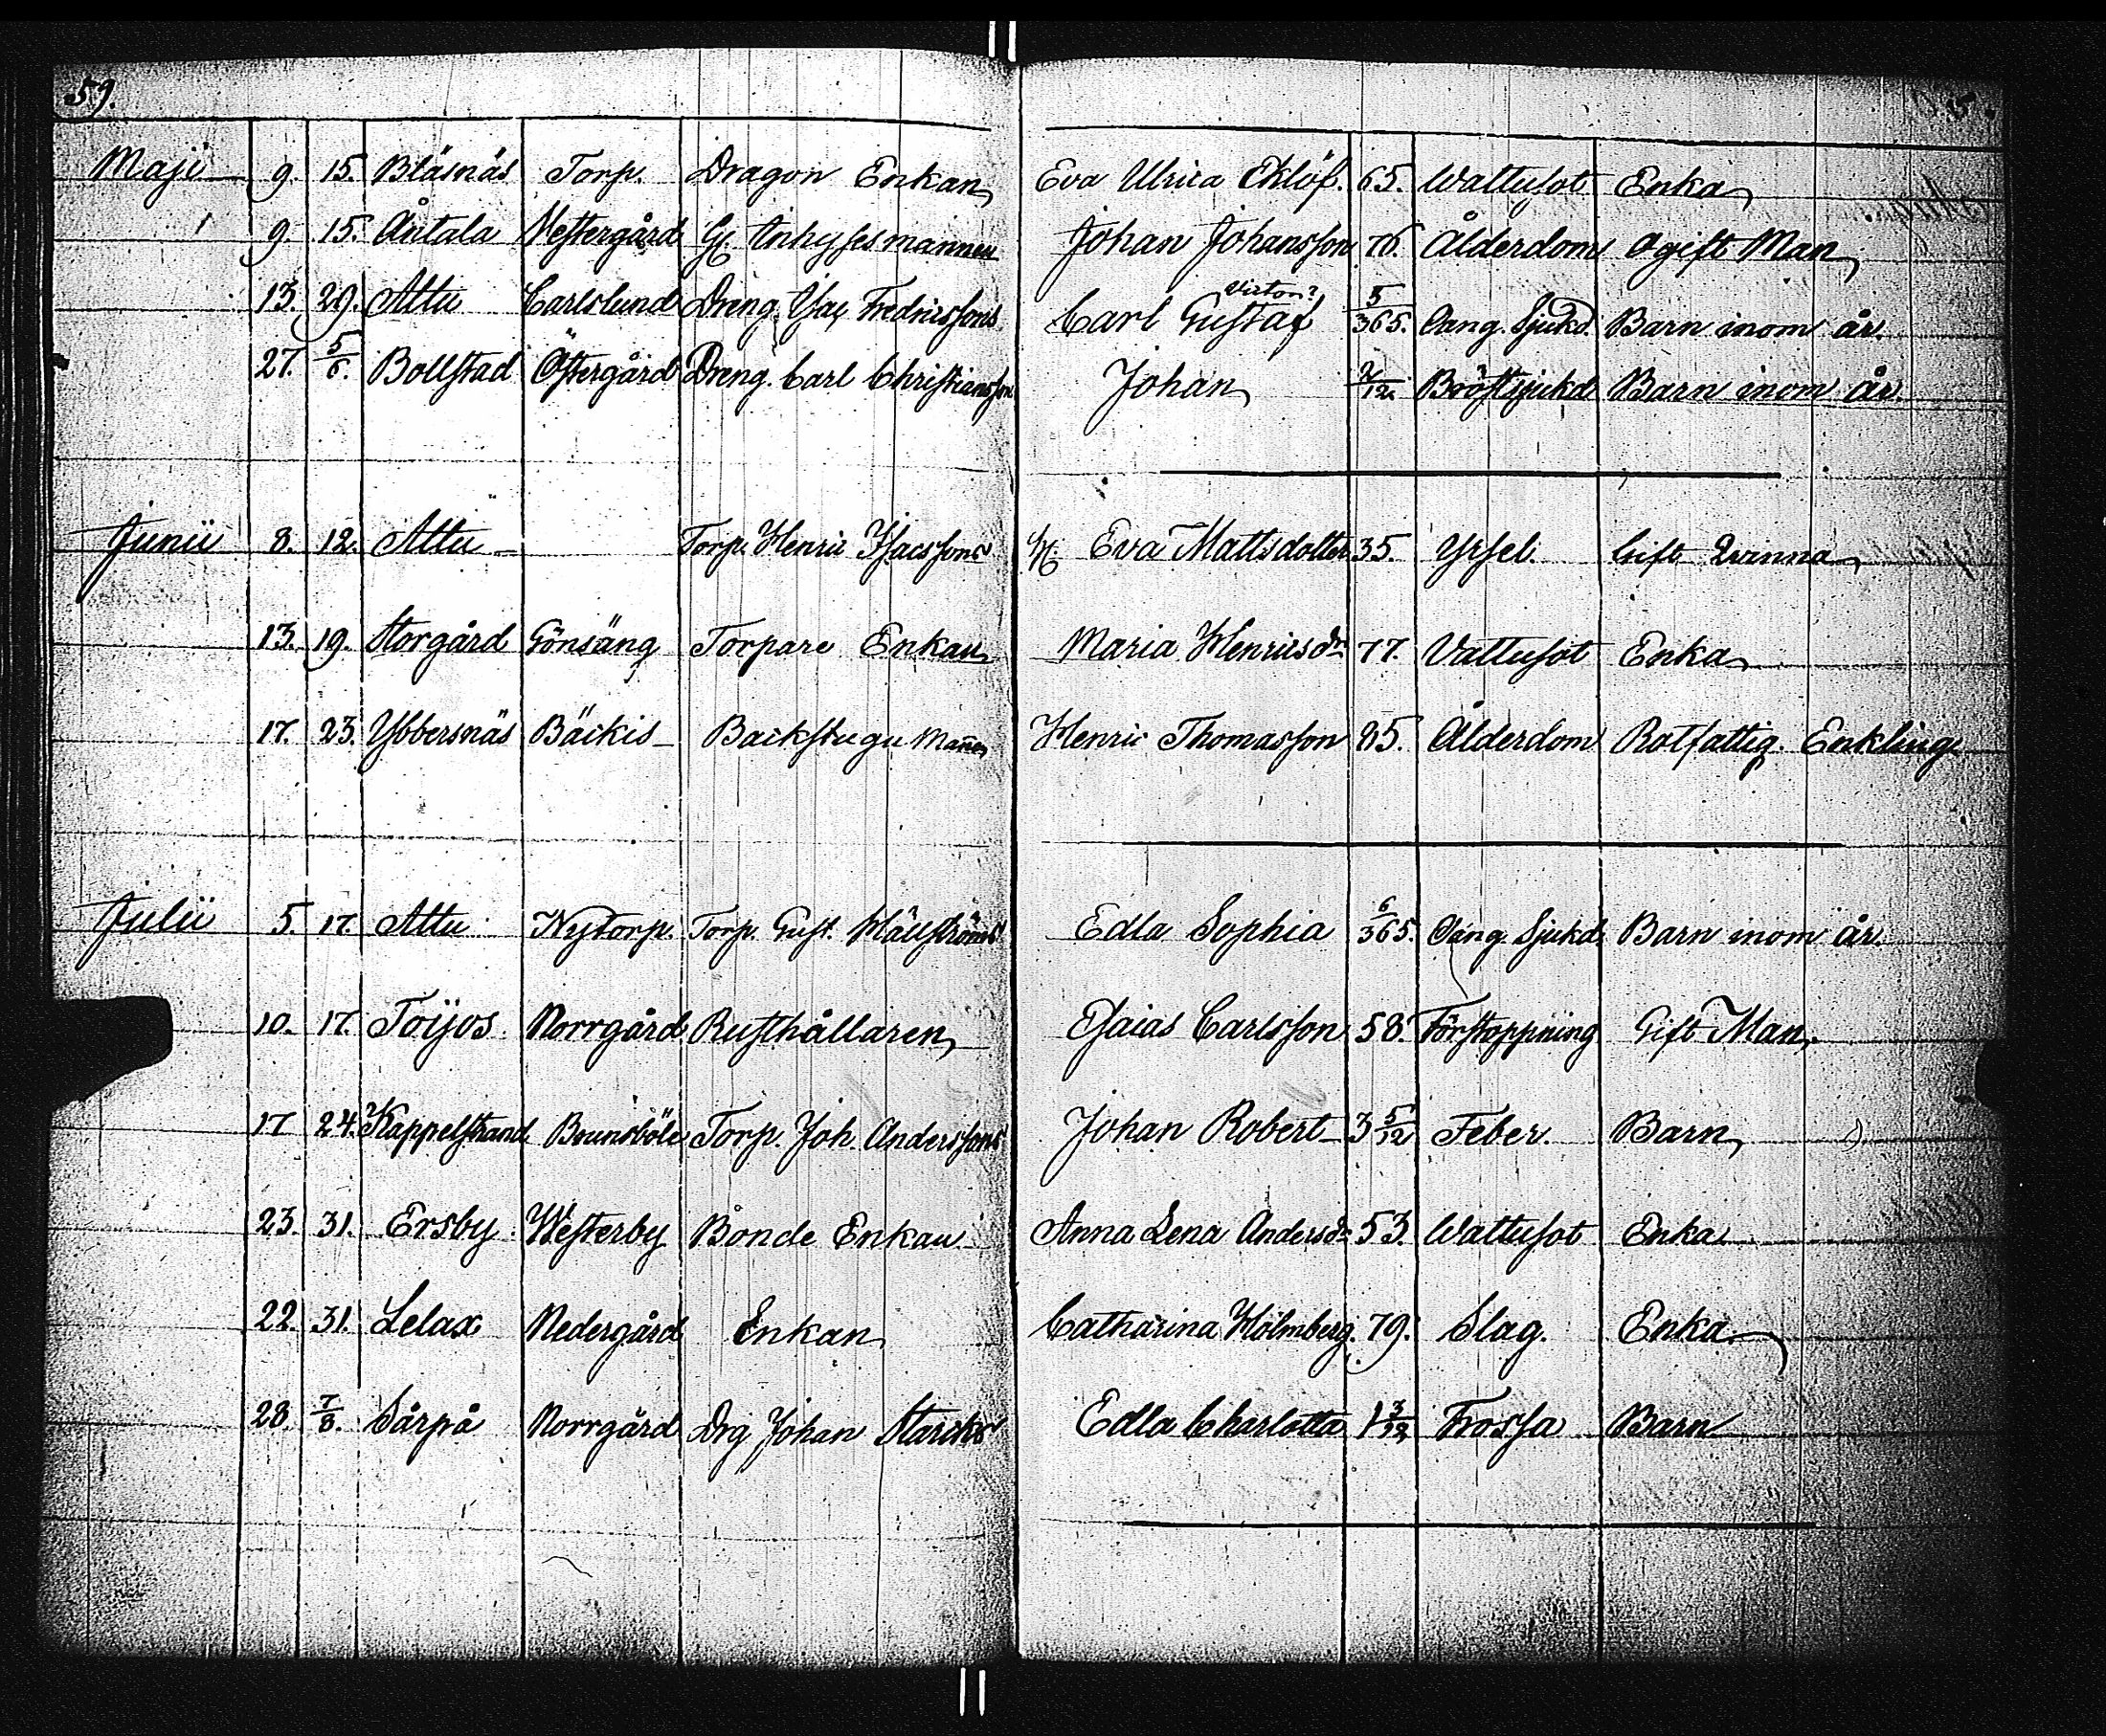 59.
Maji 9. 15. Bläsnäs Torp. Dragon Enkan Eva Ulrica Eklöf. 65. Wattusot Enka
9. 15. Åntala Vestergård Gl. Inhysesmannen Johan Johansson 76. Ålderdom Ogift Man
13. 29. Attu Carlslund Dreng. Isac Fredricssons Carl Gustaf 5/365. Oang. Sjukd. Barn inom år.
27. 5/6. Bollstad Östergård Dreng. Carl Christianssons Johan 2/12. Bröstsjukd Barn inom år.
Junii 8. 12. Attu Torp. Henric Isacssons H. Eva Mattsdotter 35. Yrsel. Gift Qvinna
13. 19. Storgård Gönsäng Torpare Enkan Maria Henricsdr 77. Vattusot Enka
17. 23. Ybbersnäs Bäckis Backstugu Mañen Henric Thomasson 85. Ålderdom Rotfattig Enkling
Julii 5. 17. Attu Nytorp. Torp. Gust. Edla Sophia 6/365. Oang. Sjukd. Barn inom år.
10. 17. Toijos Norrgård Rusthållaren Esaias Carlsson 58. Förstoppning Gift Man.
17 24. Kappelstrand Brunsböle Torp. Joh. Anderssons Johan Robert 3 5/12 Feber. Barn
23. 31. Ersby Westerby Bonde Enkan Anna Lena Andersdr 53. Wattusot Enka
22. 31. Lelax Nedergård Enkan Catharina Holmberg. 79. Slag. Enka
28. 7/8. Särpä Norrgård Drg Johan Starcks Edla Charlotta 1 3/12 Frossa Barn